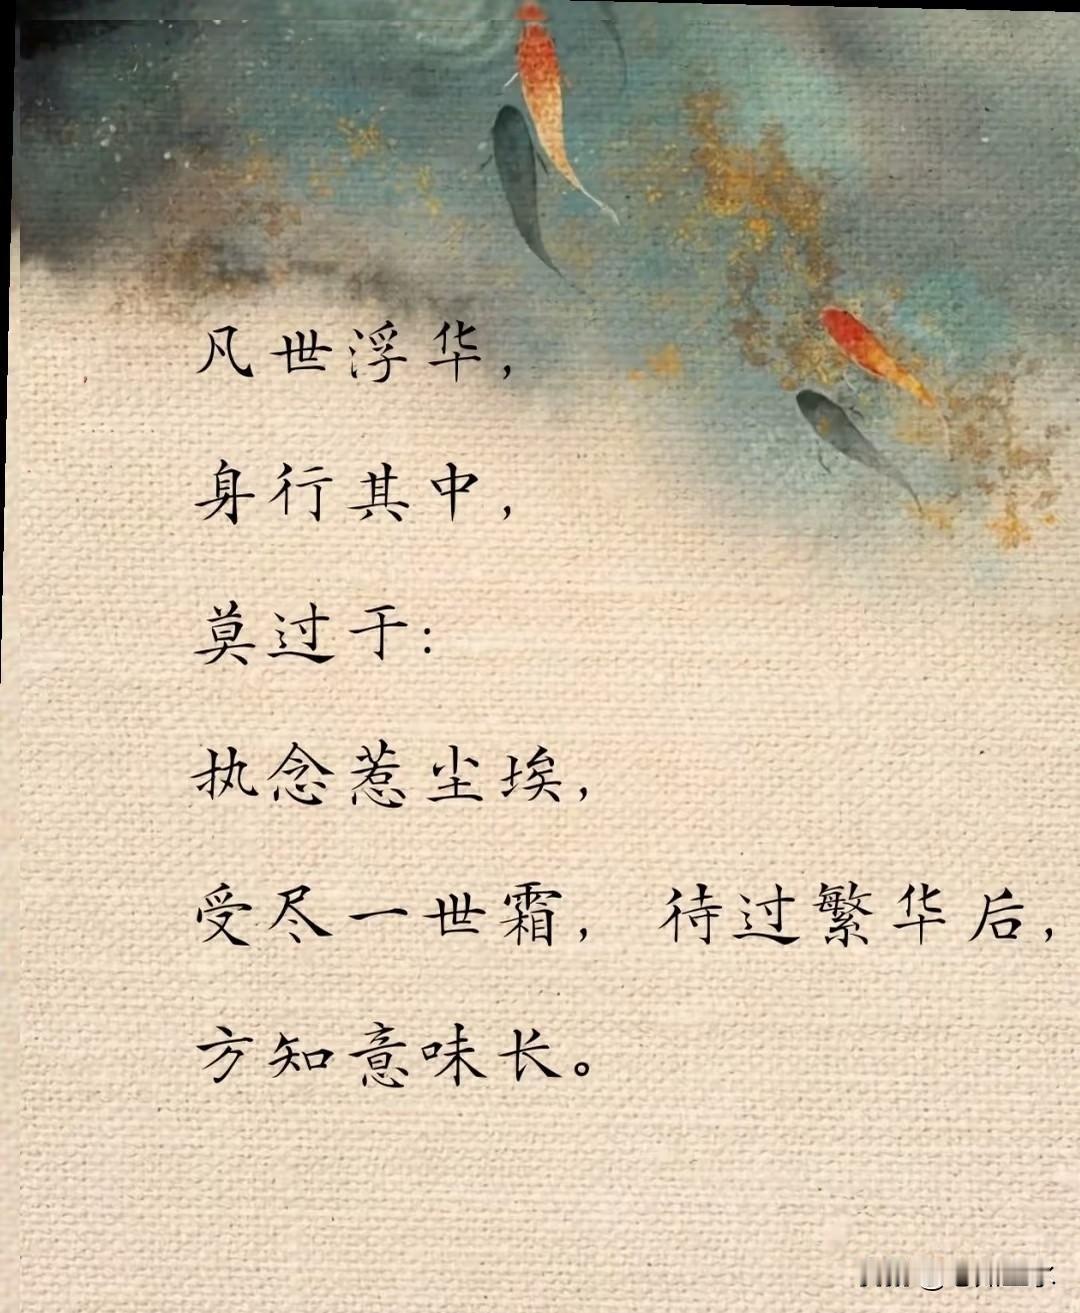 凡世浮华，
身行其中，
莫过于：
执念惹尘埃，
受尽一世霜， 待过繁华后，
方知意味长。